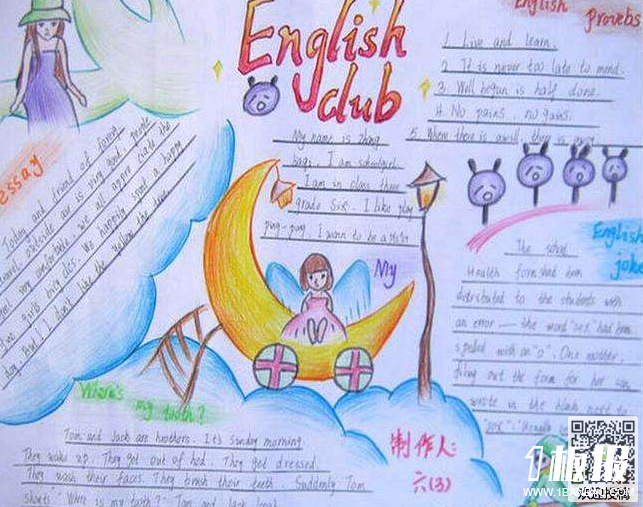 English club
English
Proverbs
1. Live and learn.
2. It is never too late to mend.
3. Well begun is half done.
4. No pains, no gains.
5. Where there is a will, there is a
My name is
I am
I am in class three
grade Six. I like play
ping-pang. I wann to be a
My
essay
Today and friend of
travel, outside air is very good, people
feel very comfortable, we all
girls
day. And I don't like the yellow the
English
joke
The
Health form had been
distributed to the students with
an error — the word "sex" had been
spelled with an "o". One mother,
out the form for her son,
wrote in the blank next to
Where's
my tooth?
Tom and Jack are brothers. It's sunday morning.
They wake up. They get out of bed. They get dressed.
They wash their faces. They brush their teeth. Suddenly Tom
shouts "Where is my tooth?" Tom and Jack
制作人:
六(3)
1板报
WWW.1BANBAO.COM
欢迎投稿